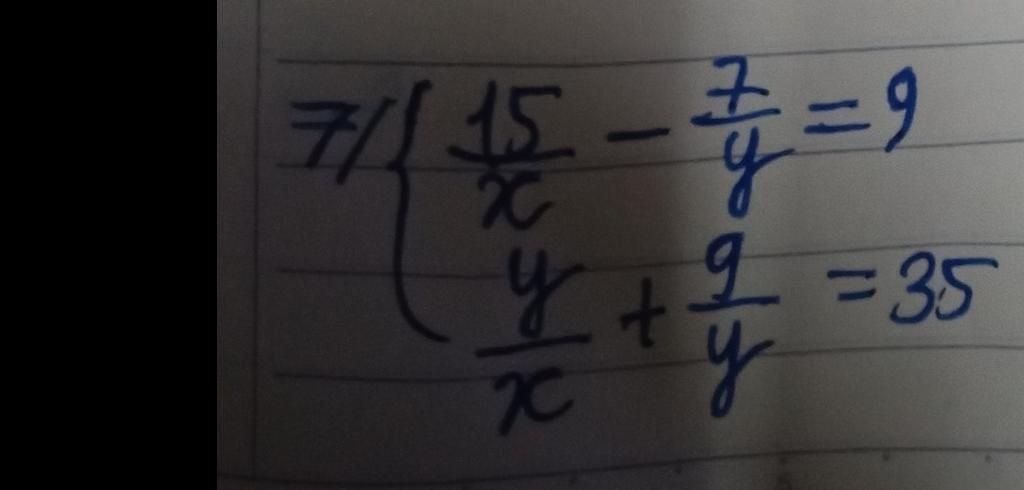 7/ { 15/x - 7/y = 9
y/x + 9/y = 35